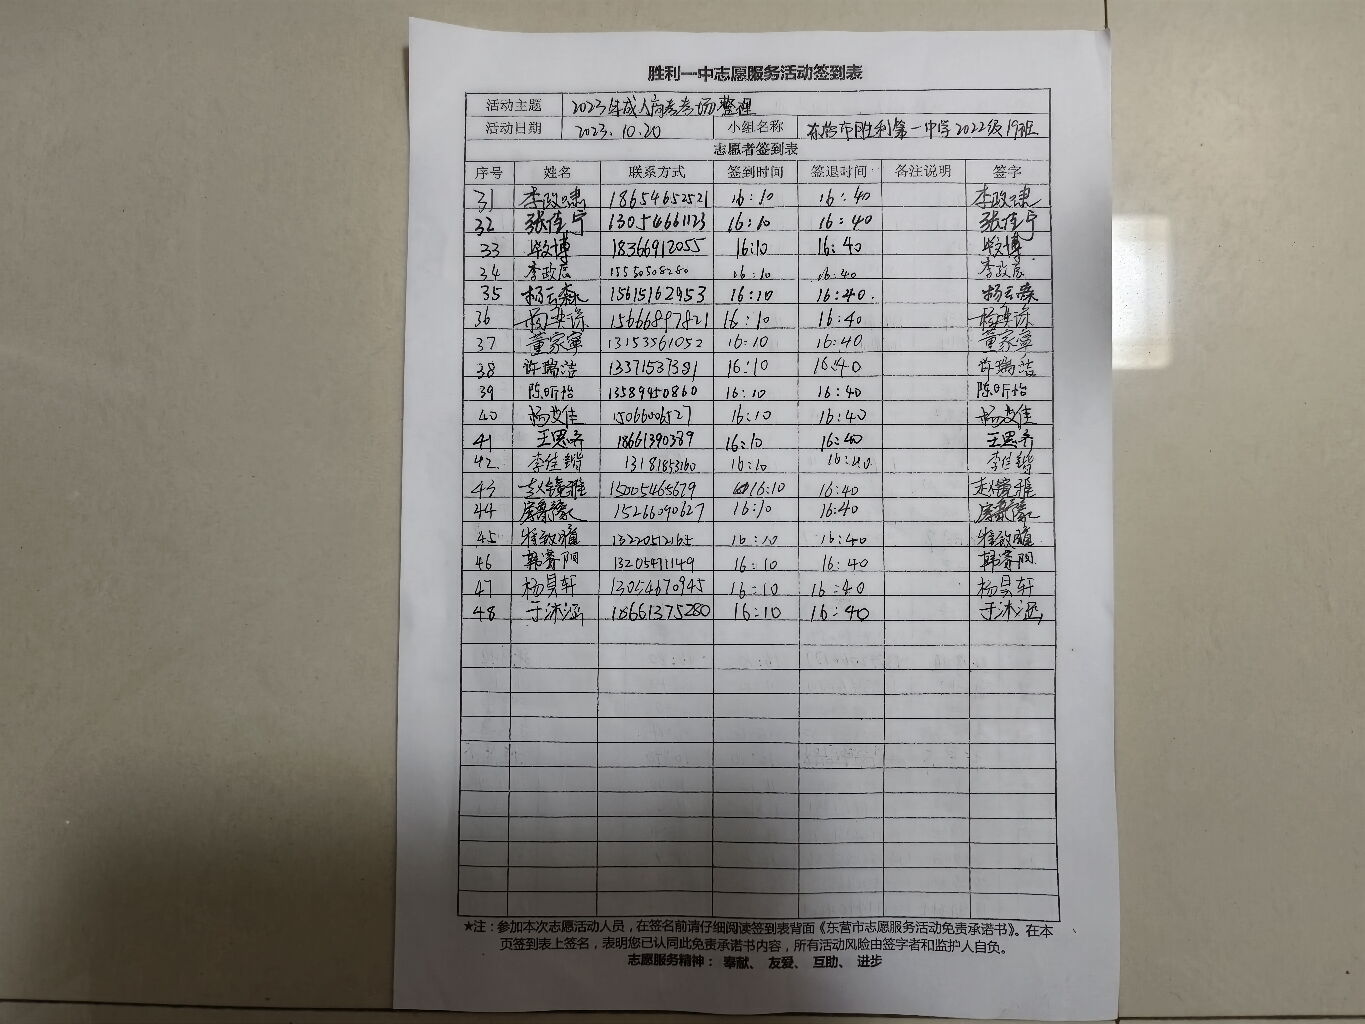 胜利一中志愿服务活动签到表
活动主题 2023年成人高考考场整理
活动日期 2023.10.20 小组名称 东营市胜利第一中学2022级19班
志愿者签到表
序号 姓名 联系方式 签到时间 签退时间 备注说明 签字
31 李政啸 18654652521 16:10 16:40 李政啸
32 张佳宁 13054661123 16:10 16:40 张佳宁
33 18366912055 16:10 16:40
34 李政辰 15550508280 16:10 16:40 李政辰
35 杨云森 15615162953 16:10 16:40. 杨云森
36 15666897821 16:10 16:40
37 董家宁 13153561052 16:10 16:40 董家宁
38 许瑞洁 13371537381 16:10 16:40 许瑞洁
39 陈昕怡 13589450860 16:10 16:40 陈昕怡
40 杨艾佳 15066006527 16:10 16:40 杨艾佳
41 王思齐 18661390389 16:10 16:40 王思齐
42 李佳锴 13181853160 16:10 16:40 李佳锴
43 赵镜雅 15005465679 16:10 16:40 赵镜雅
44 15266090627 16:10 16:40
45 13220512165 16:10 16:40
46 13205471149 16:10 16:40
47 杨昊轩 13054670945 16:10 16:40 杨昊轩
48 于沐涵 18661375280 16:10 16:40 于沐涵
★注：参加本次志愿活动人员，在签名前请仔细阅读签到表背面《东营市志愿服务活动免责承诺书》。在本
页签到表上签名，表明您已认同此免责承诺书内容，所有活动风险由签字者和监护人自负。
志愿服务精神： 奉献、 友爱、 互助、 进步